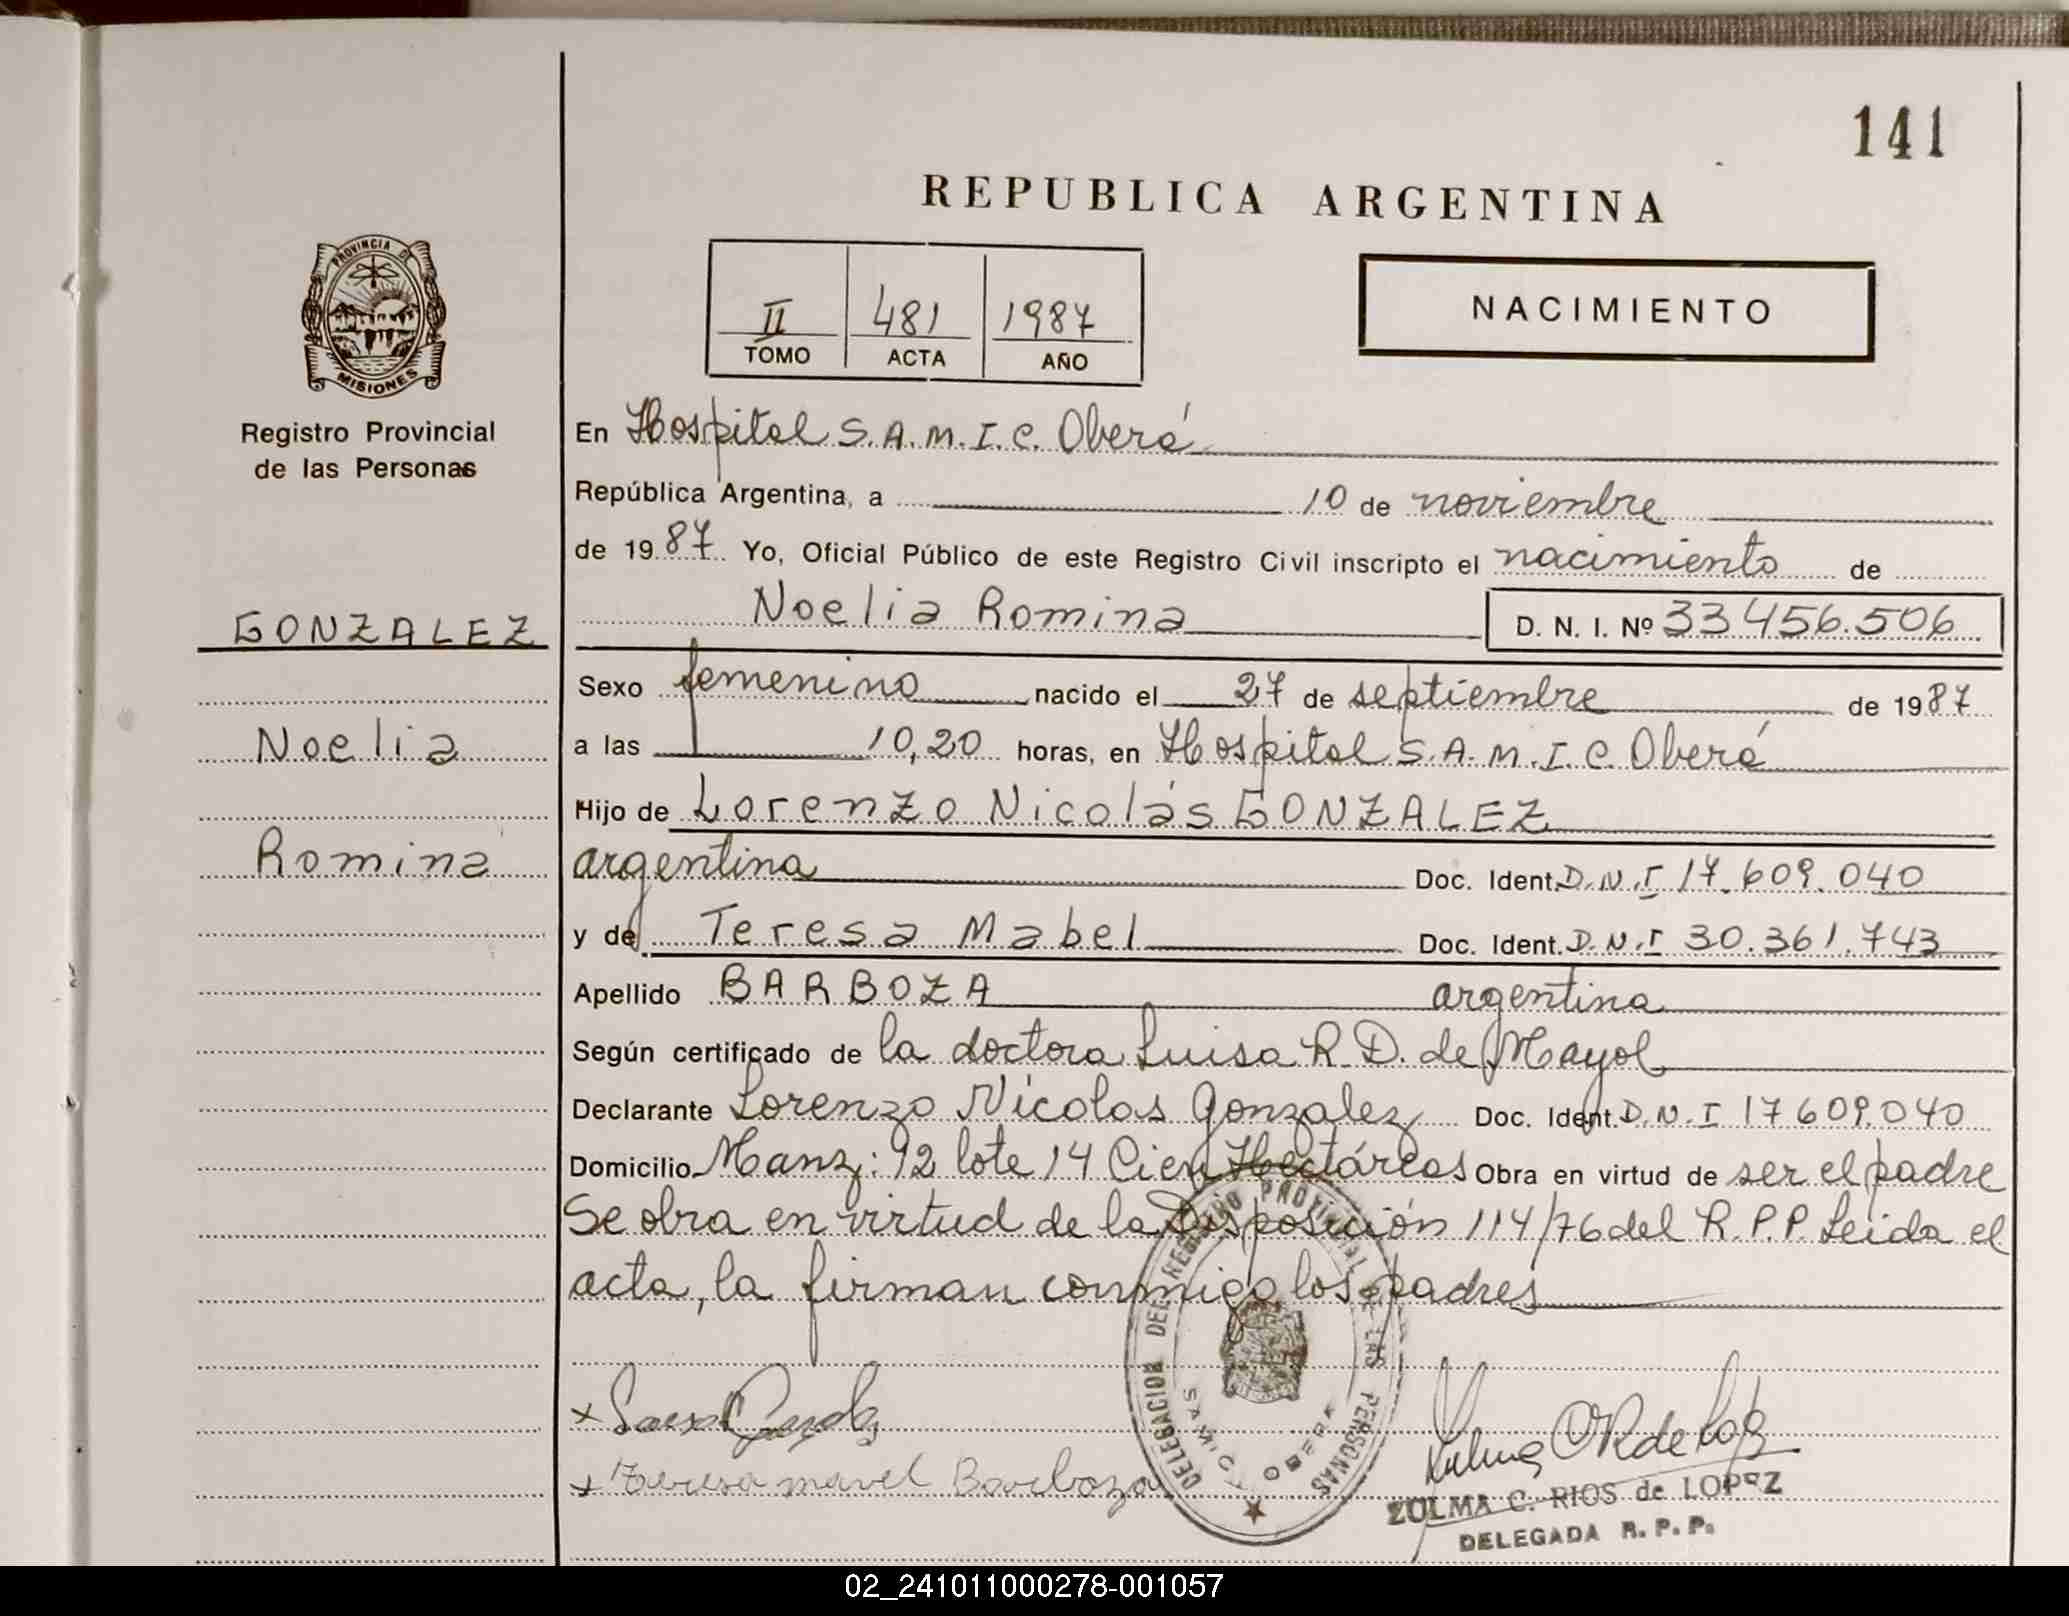 141
REPUBLICA ARGENTINA
PROVINCIA DE
MISIONES
Registro Provincial
de las Personas
II 481 1987
TOMO ACTA AÑO
NACIMIENTO
En Hospital S.A.M.I.C. Oberá
República Argentina, a 10 de noviembre
de 1987 Yo, Oficial Público de este Registro Civil inscripto el nacimiento de
Noelia Romina D. N. I. Nº 33456.506
GONZALEZ
Noelia
Romina
Sexo femenino nacido el 27 de septiembre de 1987
a las 10,20 horas, en Hospital S.A.M.I.C. Oberá
Hijo de Lorenzo Nicolás GONZALEZ
argentina Doc. Ident. D.N.I 17.609.040
y de Teresa Mabel Doc. Ident. D.N.I 30.361.743
Apellido BARBOZA argentina
Según certificado de la doctora Luisa R. D. de Mayol
Declarante Lorenzo Nicolas Gonzalez Doc. Ident. D.N.I 17609.040
Domicilio Manz: 92 lote 14 Cien Hectáreas Obra en virtud de ser el padre
Se obra en virtud de la Disposición 114/76 del R.P.P. Leida el
acta, la firman conmigo los padres
DELEGACION DEL REGISTRO PROVINCIAL DE LAS PERSONAS
SAMIC OBERA
Teresa mavel Barboza
ZULMA C. RIOS de LOPEZ
DELEGADA R. P. P.
02_241011000278-001057